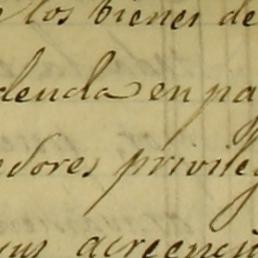 los bienes de
deuda en pa
edores privileg
sus acreenci